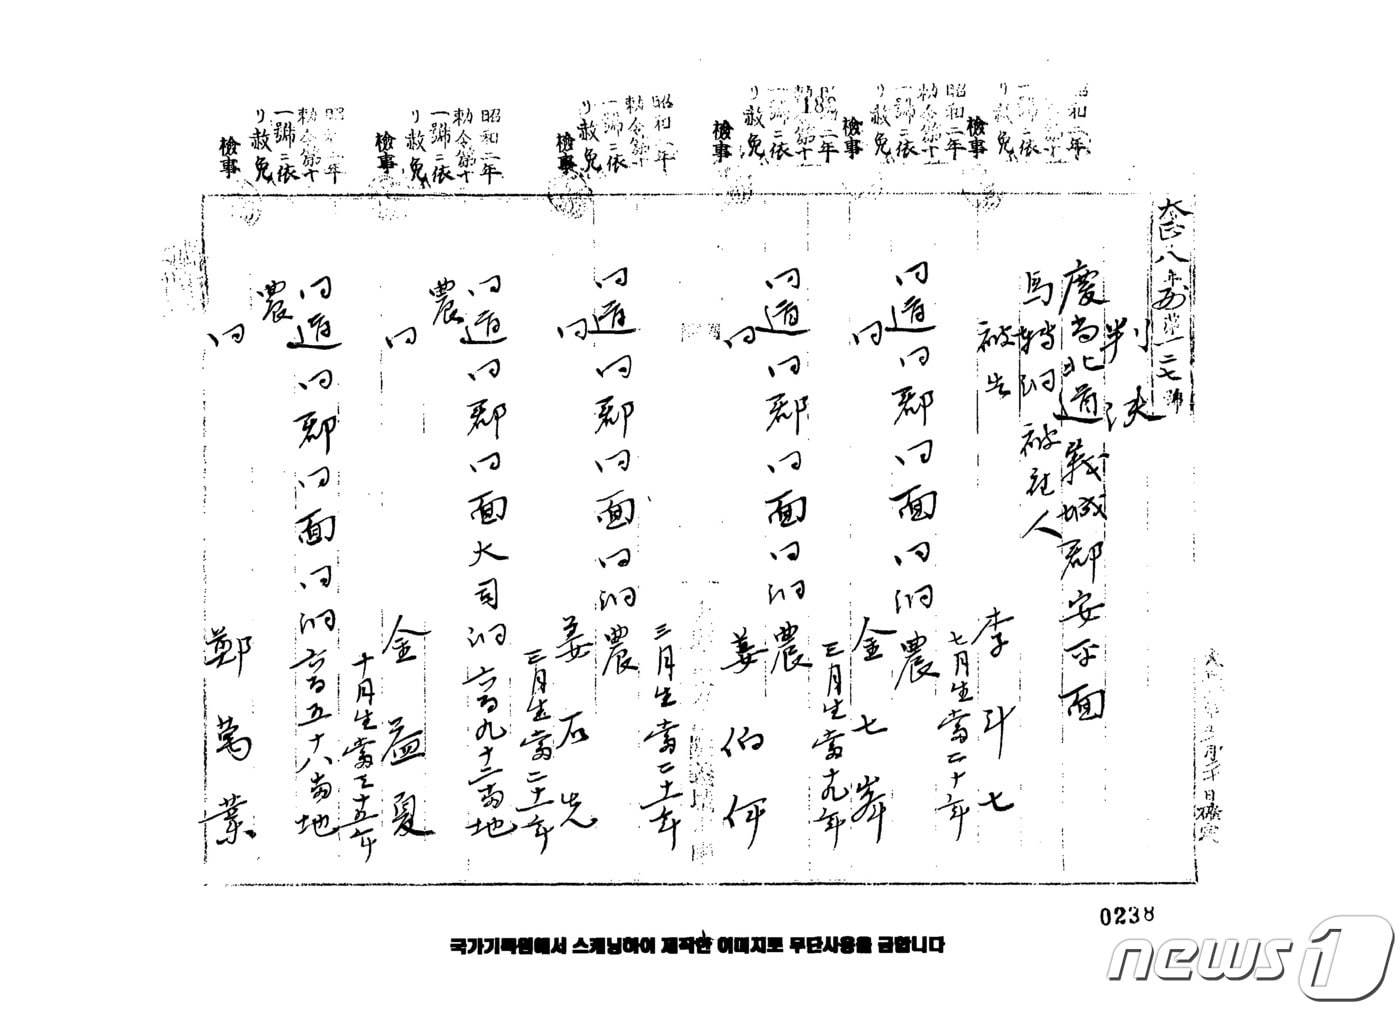 大正八年刑第一二七號
判決
慶尚北道義城郡安平面
馬轉洞 被 人
被告 李斗七
七月生當二十年
同道同郡同面同洞 農
同 金七峯
三月生當十九年
同道同郡同面同洞 農
同 姜伯伊
三月生當二十一年
同道同郡同面同洞 農
同 姜石先
三月生當二十二年
同道同郡同面大司洞 九十二番地
農
同 金益夏
十月生當三十五年
同道同郡同面同洞 五十八番地
農
同 鄭萬業
昭和二年
勅令第十
一號ニ依
リ赦免
檢事
昭和二年
勅令第十
一號ニ依
リ赦免
檢事
昭和二年
勅令第十
一號ニ依
リ赦免
檢事
昭和二年
勅令第十
一號ニ依
リ赦免
檢事
昭和二年
勅令第十
一號ニ依
リ赦免
檢事
昭和二年
勅令第十
一號ニ依
リ赦免
檢事
0238
국가기록원에서 스캐닝하여 제작한 이미지로 무단사용을 금합니다
news1